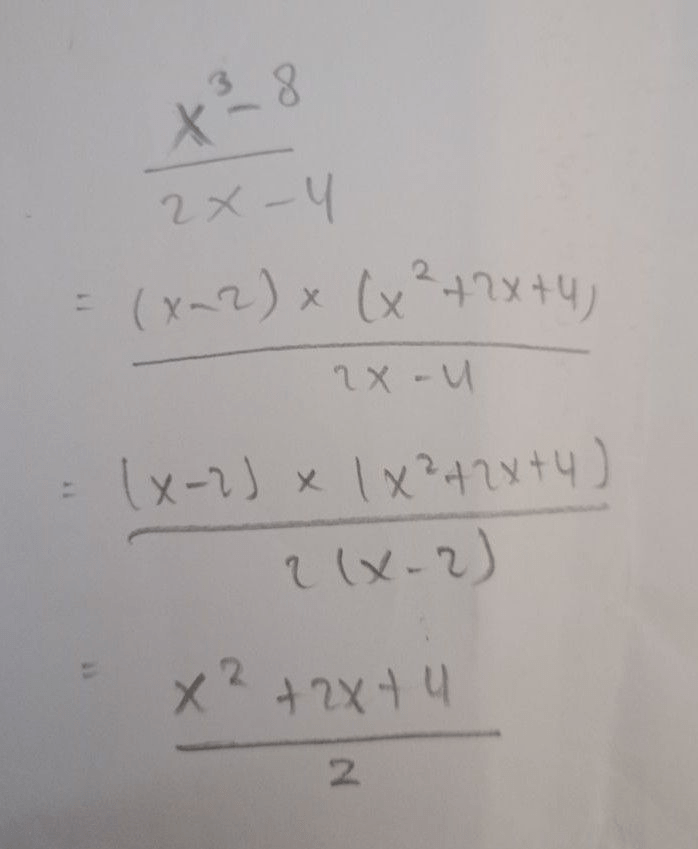 x³ - 8
2x - 4
= (x-2) × (x²+2x+4)
2x - 4
= (x-2) × (x²+2x+4)
2(x-2)
= x² + 2x + 4
2